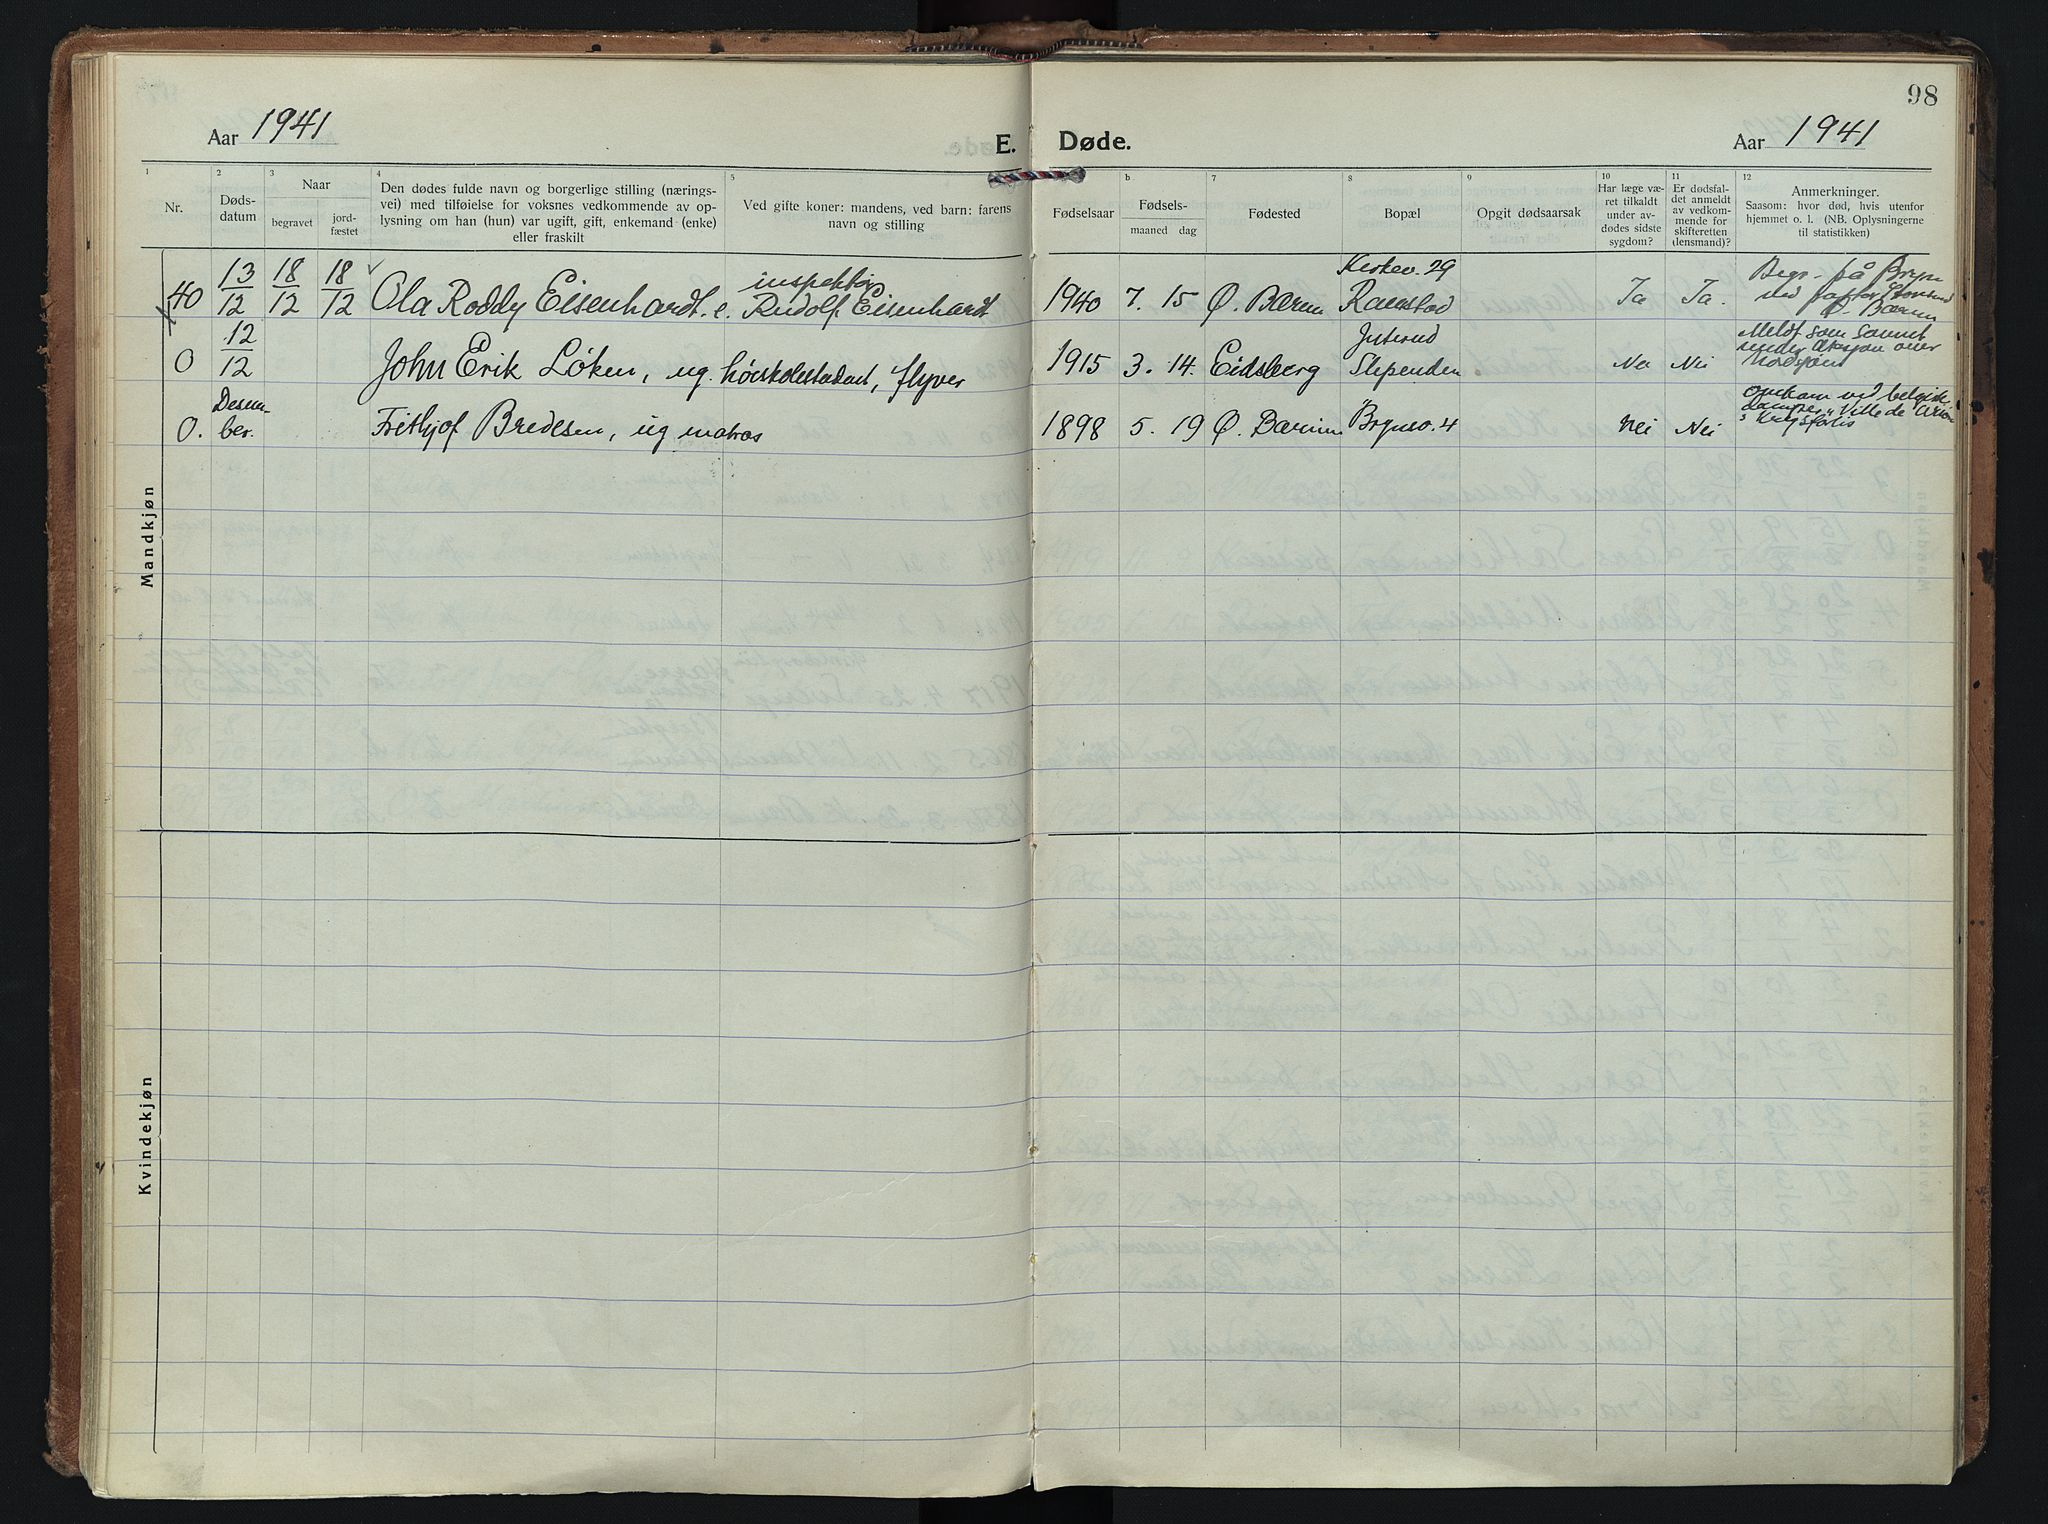 98
Aar 1941
E. Døde.
Aar 1941
1 2 3 4 5 b 7 8 9 10 11 12
Nr.
Døds-
datum
Naar
begravet
jord-
fæstet
Den dødes fulde navn og borgerlige stilling (nærings-
vei) med tilføielse for voksnes vedkommende av op-
lysning om han (hun) var ugift, gift, enkemand (enke)
eller fraskilt
Ved gifte koner: mandens, ved barn: farens
navn og stilling
Fødselsaar
Fødsels-
maaned dag
Fødested
Bopæl
Opgit dødsaarsak
Har læge væ-
ret tilkaldt
under av-
dødes sidste
sygdom?
Er dødsfal-
det anmeldt
av vedkom-
mende for
skifteretten
(lensmand)?
Anmerkninger.
Saasom: hvor død, hvis utenfor
hjemmet o. l. (NB. Oplysningerne
til statistikken)
Mandkjøn
40 13/12 18/12 18/12 Ola Roddy Eisenhardt. e. inspektør Rudolf Eisenhardt 1940 7. 15 Ø. Bærum Kirkev. 29 Ramstad Ja Ja. Begr. på Bryn
ved pastor
Ø. Bærum
0 12/12 John Erik Løken, ug. høiskolestudent, flyver 1915 3. 14. Eidsberg Juterud Slependen Nei Nei Meldt som savnet
under aksjon over
Nordsjøen
0. Desem-
ber. Frithjof Bredesen, ug matros 1898 5. 19 Ø. Bærum Brynsv. 4 Nei Nei omkom ved belgisk
damper "Ville de
krigsforlis
Kvindekjøn